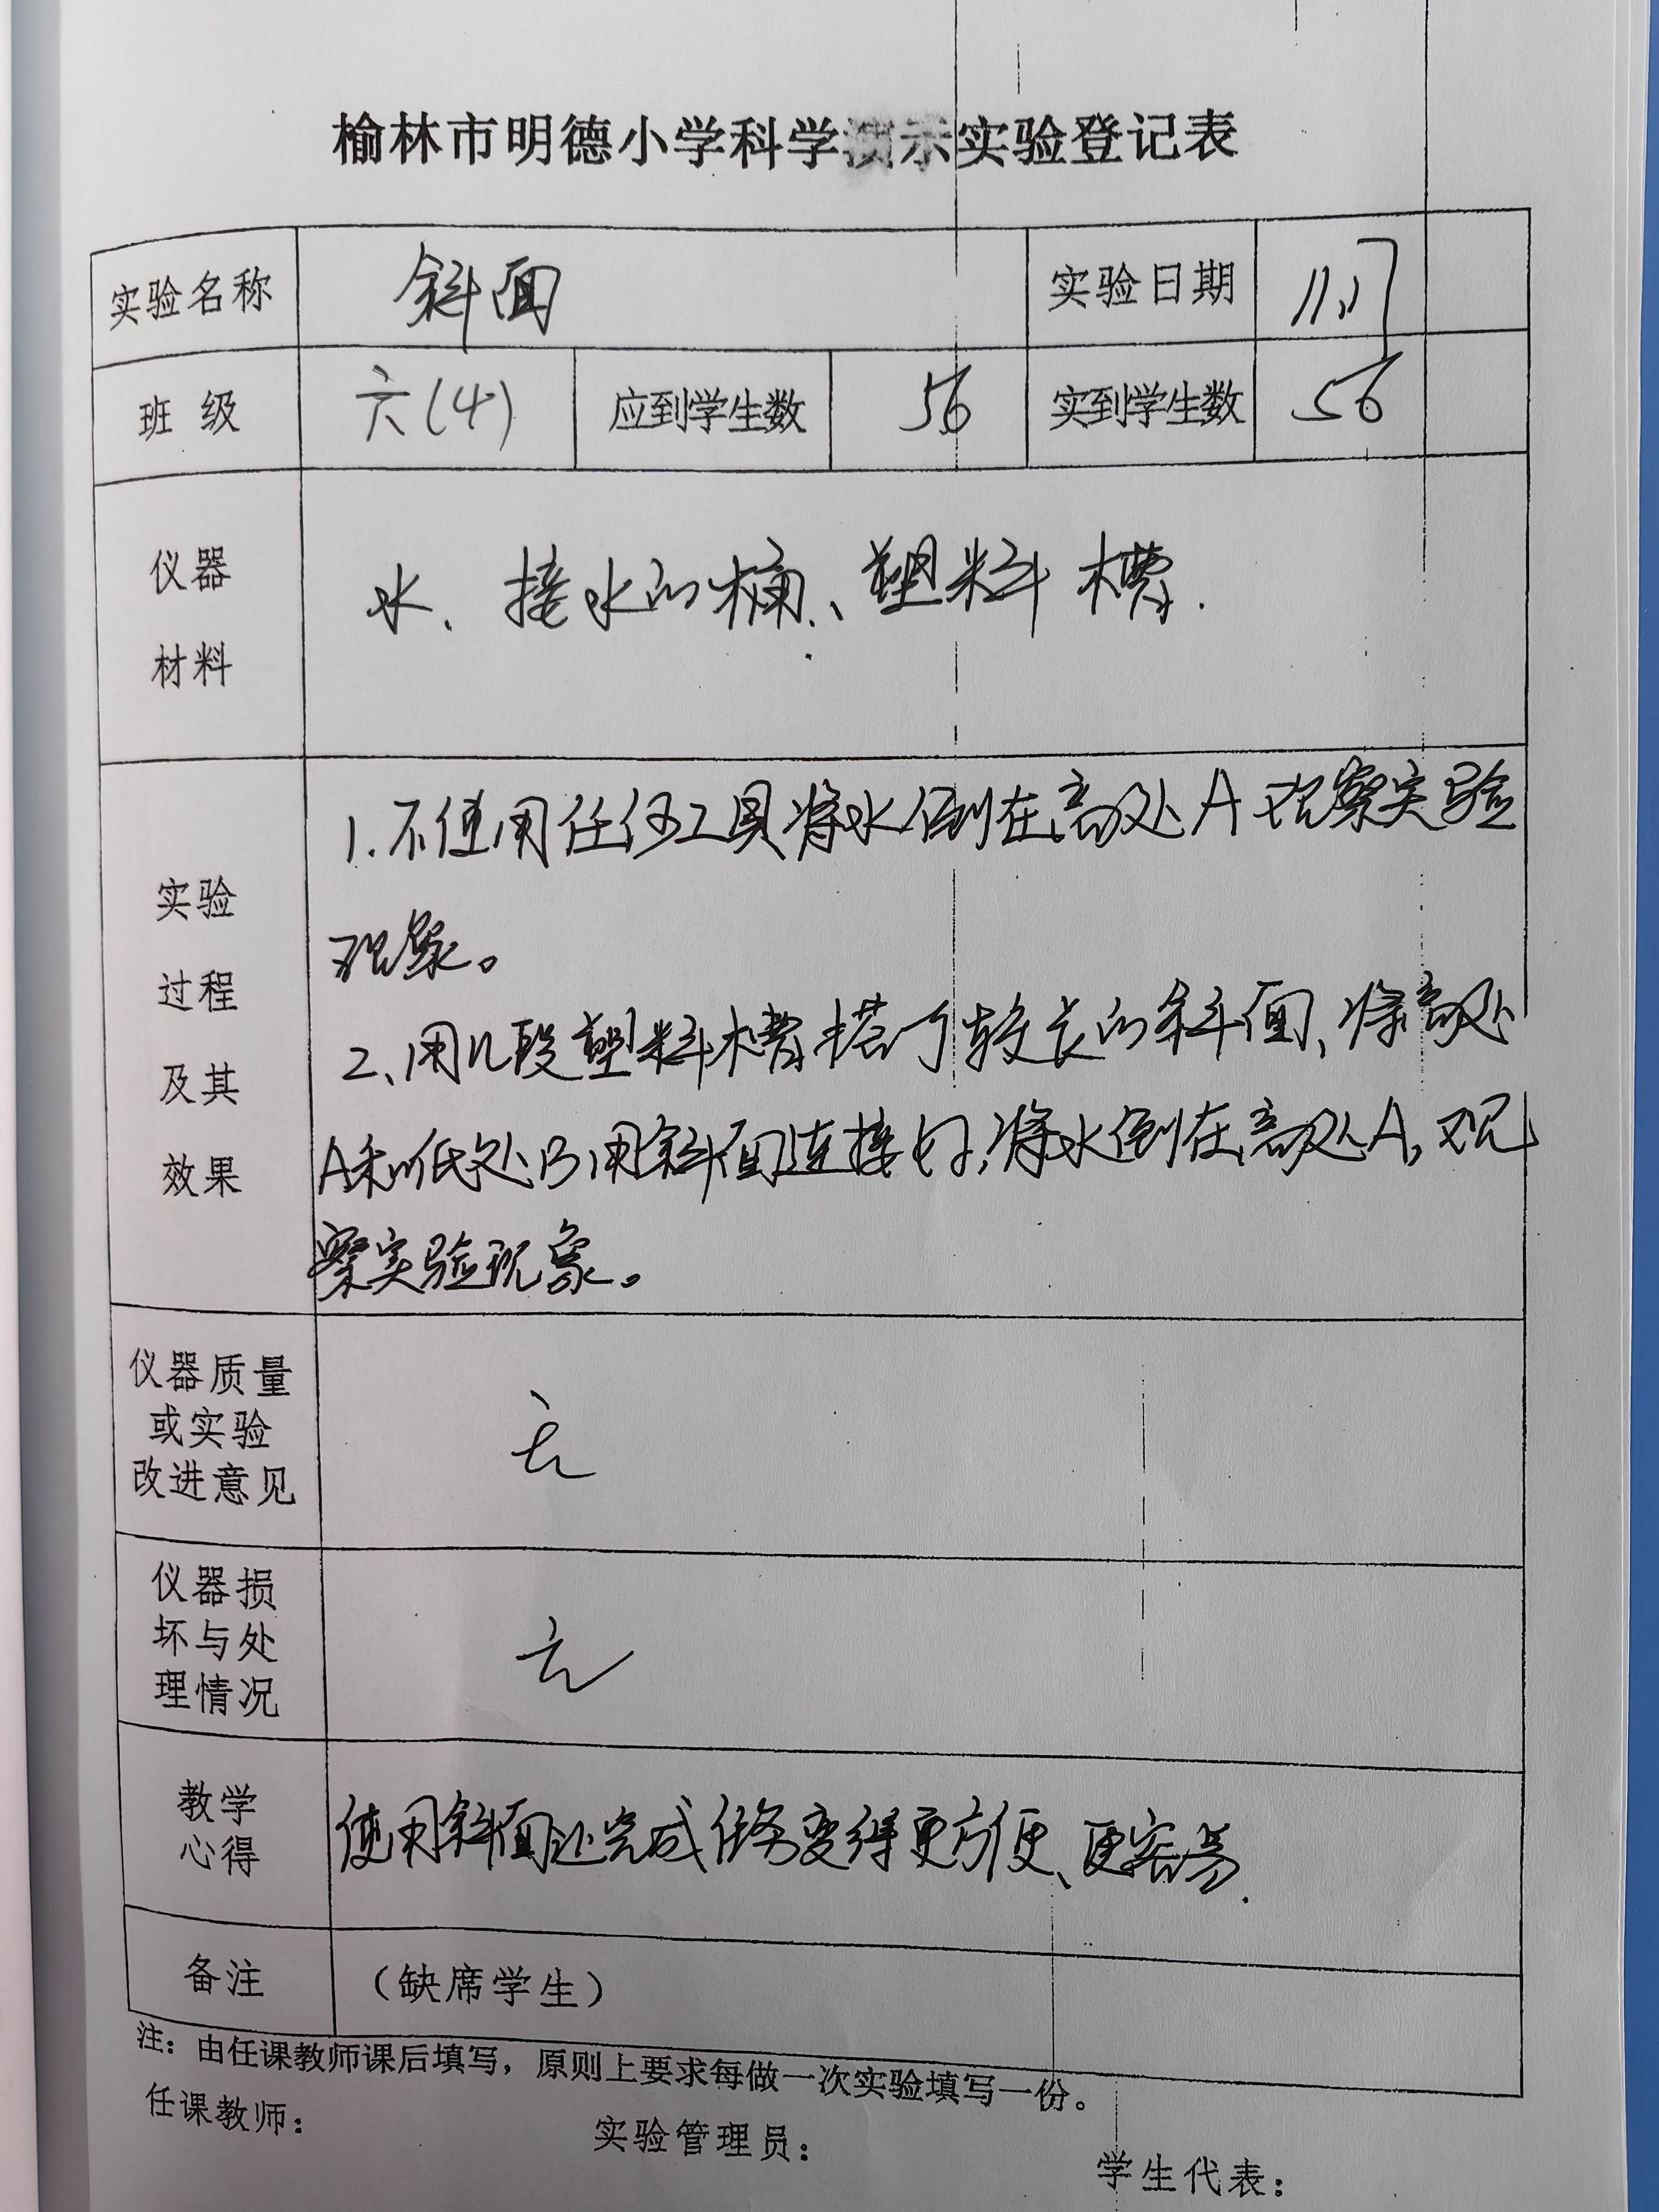 榆林市明德小学科学演示实验登记表
实验名称 斜面 实验日期 11.17
班 级 六(4) 应到学生数 56 实到学生数 56
仪器
材料
水、接水的桶、塑料槽.
实验
过程
及其
效果
1.不使用任何工具将水倒在高处A观察实验
现象。
2、用几段塑料槽搭个较长的斜面、将高处
A和低处B用斜面连接好,将水倒在高处A,观
察实验现象。
仪器质量
或实验
改进意见
无
仪器损
坏与处
理情况
无
教学
心得
使用斜面让完成任务变得更方便、更容易.
备注 (缺席学生)
注:由任课教师课后填写,原则上要求每做一次实验填写一份。
任课教师: 实验管理员: 学生代表: